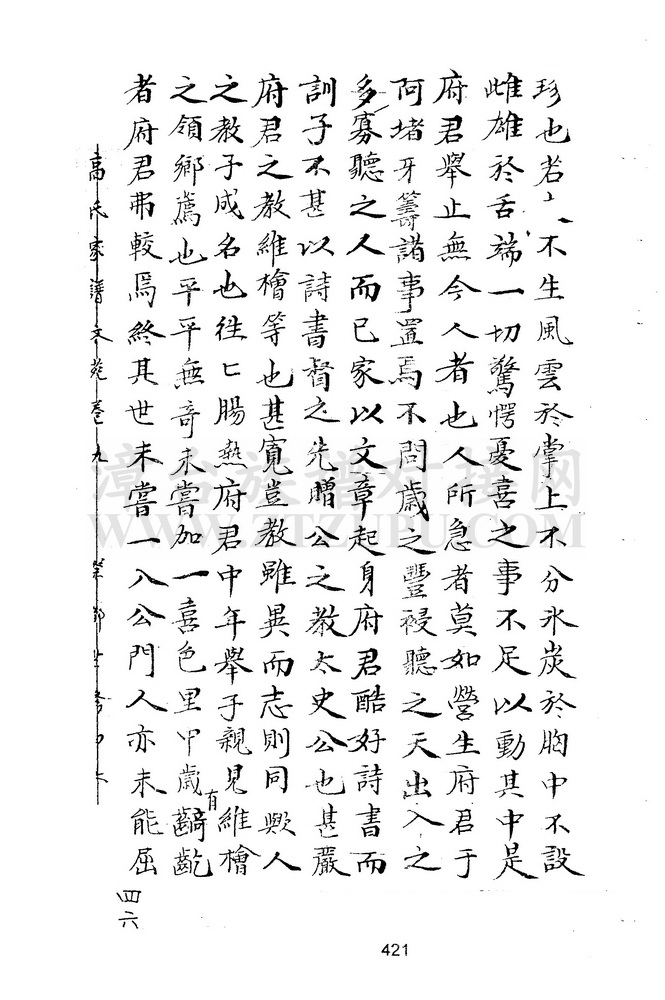 珍也若夫不生風雲於掌上不分氷炭於胸中不設
雌雄於舌端一切驚愕憂喜之事不足以動其中是
府君舉止無今人者也人所急者莫如營生府君于
阿堵牙籌諸事置焉不問歲之豐祲聽之天出入之
多寡聽之人而已家以文章起身府君酷好詩書而
訓子不甚以詩書督之先贈公之教太史公也甚嚴
府君之教維檜等也甚寬豈教雖異而志則同歟人
之教子成名也徃匕腸熱府君中年舉子親見維檜
之領鄉薦也平平無奇未嘗加一喜色里甲歲有齮齕
者府君弗較焉終其世未嘗一入公門人亦未能屈
高氏家譜文苑卷九
四六
421
漳台族譜对接网
WWW.ZTZUPU.COM